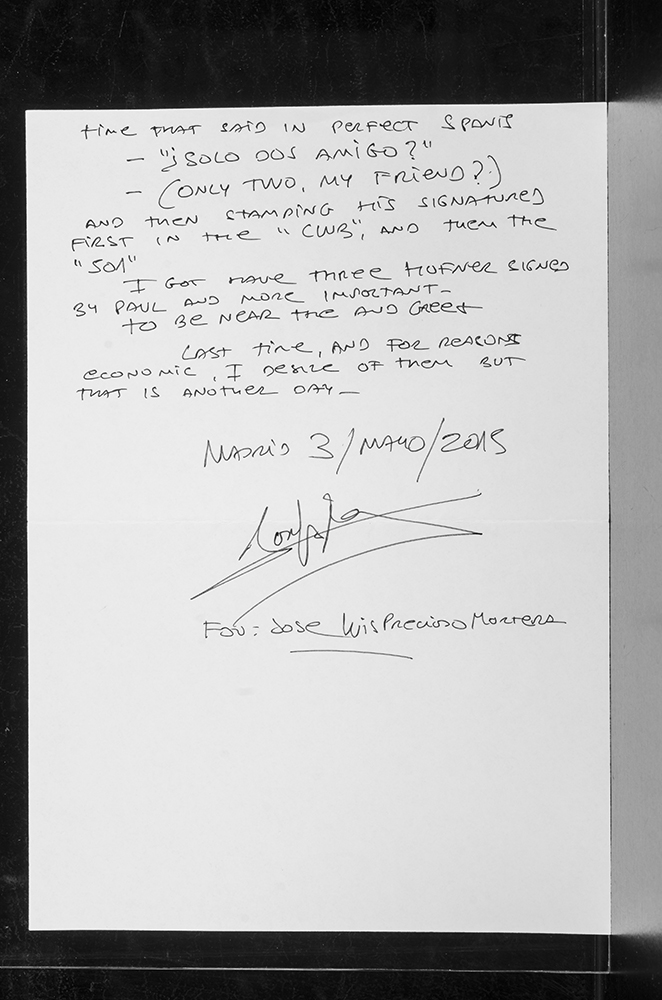 time that said in perfect spanis
- "¡solo dos amigo?"
- (only two, my friend?)
and then stamping his signatured
first in the "club", and them the
"501"
I got have three Hofner signed
by Paul and more important-
to be near the and greet
Last time, and for reasons
economic, I desize of them but
that is another day-
Madrid 3/Mayo/2015
Fdo: Jose Luis Precioso Mortera